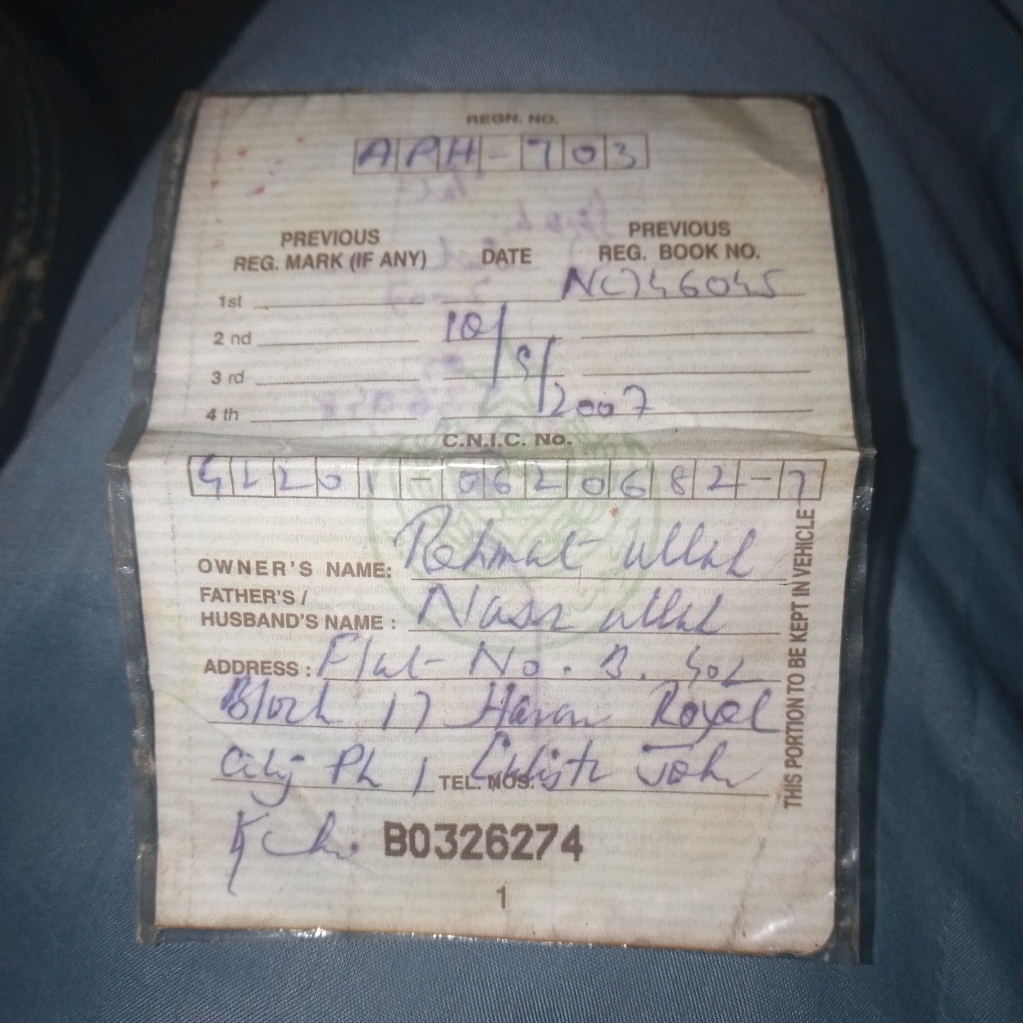 REGN. NO.
APH-703
PREVIOUS REG. MARK (IF ANY) DATE PREVIOUS REG. BOOK NO.
1st NC746045
2 nd 10/
3 rd 5/
4 th 2007
C.N.I.C. No.
42201-0620682-7
OWNER'S NAME: Rehmat ullah
FATHER'S /
HUSBAND'S NAME : Nasr ullah
ADDRESS : Flat No. B. 402
Block 17 Haroon Royal
City Ph 1 TEL. NOS. Johr
Kchi. B0326274
1
THIS PORTION TO BE KEPT IN VEHICLE